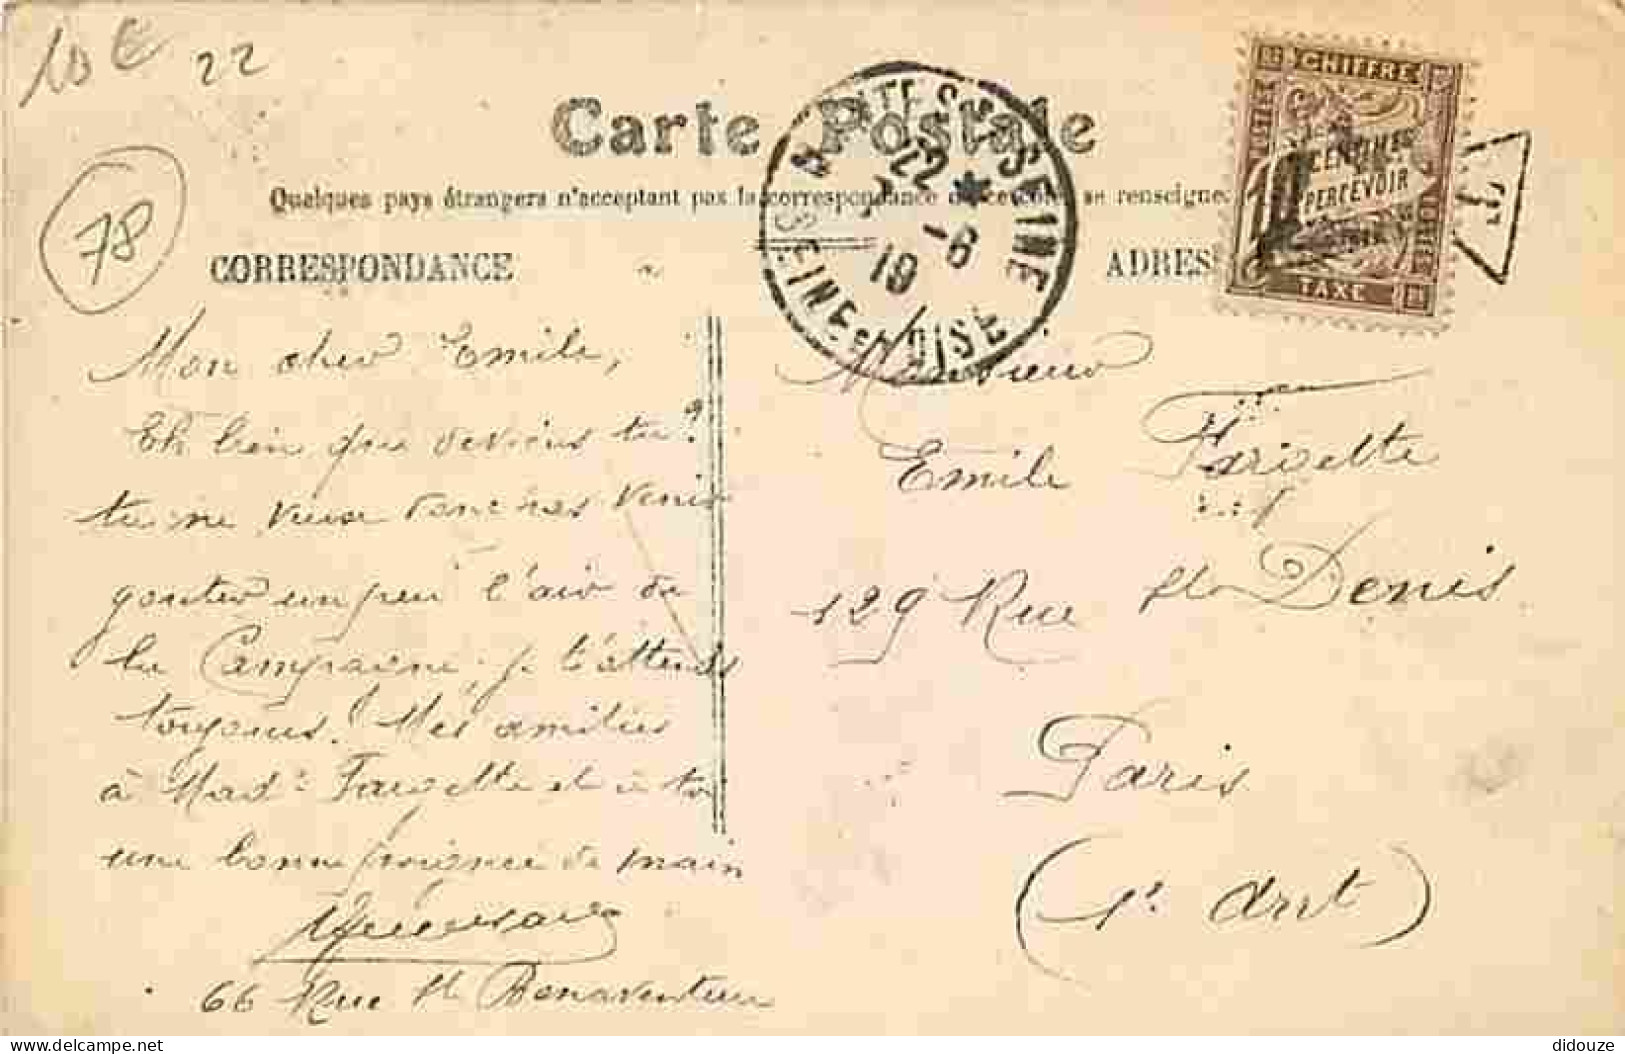 10 € 22
78
Carte Postale
Quelques pays étrangers n'acceptent pas la correspondance se renseigner
CORRESPONDANCE
ADRES
MANTES S/ SEINE
22 * -6 19
SEINE-&-OISE
CHIFFRE
10 CENTIMES
A PERCEVOIR
TAXE
POSTES
T
Mon cher Emile,
Eh bien que deviens tu?
tu ne veux donc pas venir
gouter un peu l'air de
la Campagne, je t'attends
toujours. Mes amitiés
à Mad.e Fargette et à toi
une bonne poignée de main
66 Rue St Bonaventure
Monsieur
Emile Fargette
129 Rue St Denis
Paris
(1er Arrt)
delcampe.net
didouze